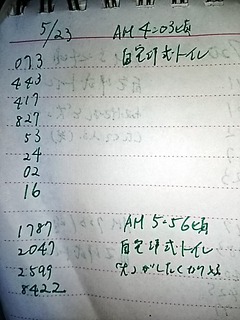 5/23 AM 4:03頃
073 自宅印式トイレ
443
417
827
53
24
02
16
1787 AM 5:56頃
2047 自宅印式トイレ
2599
8422